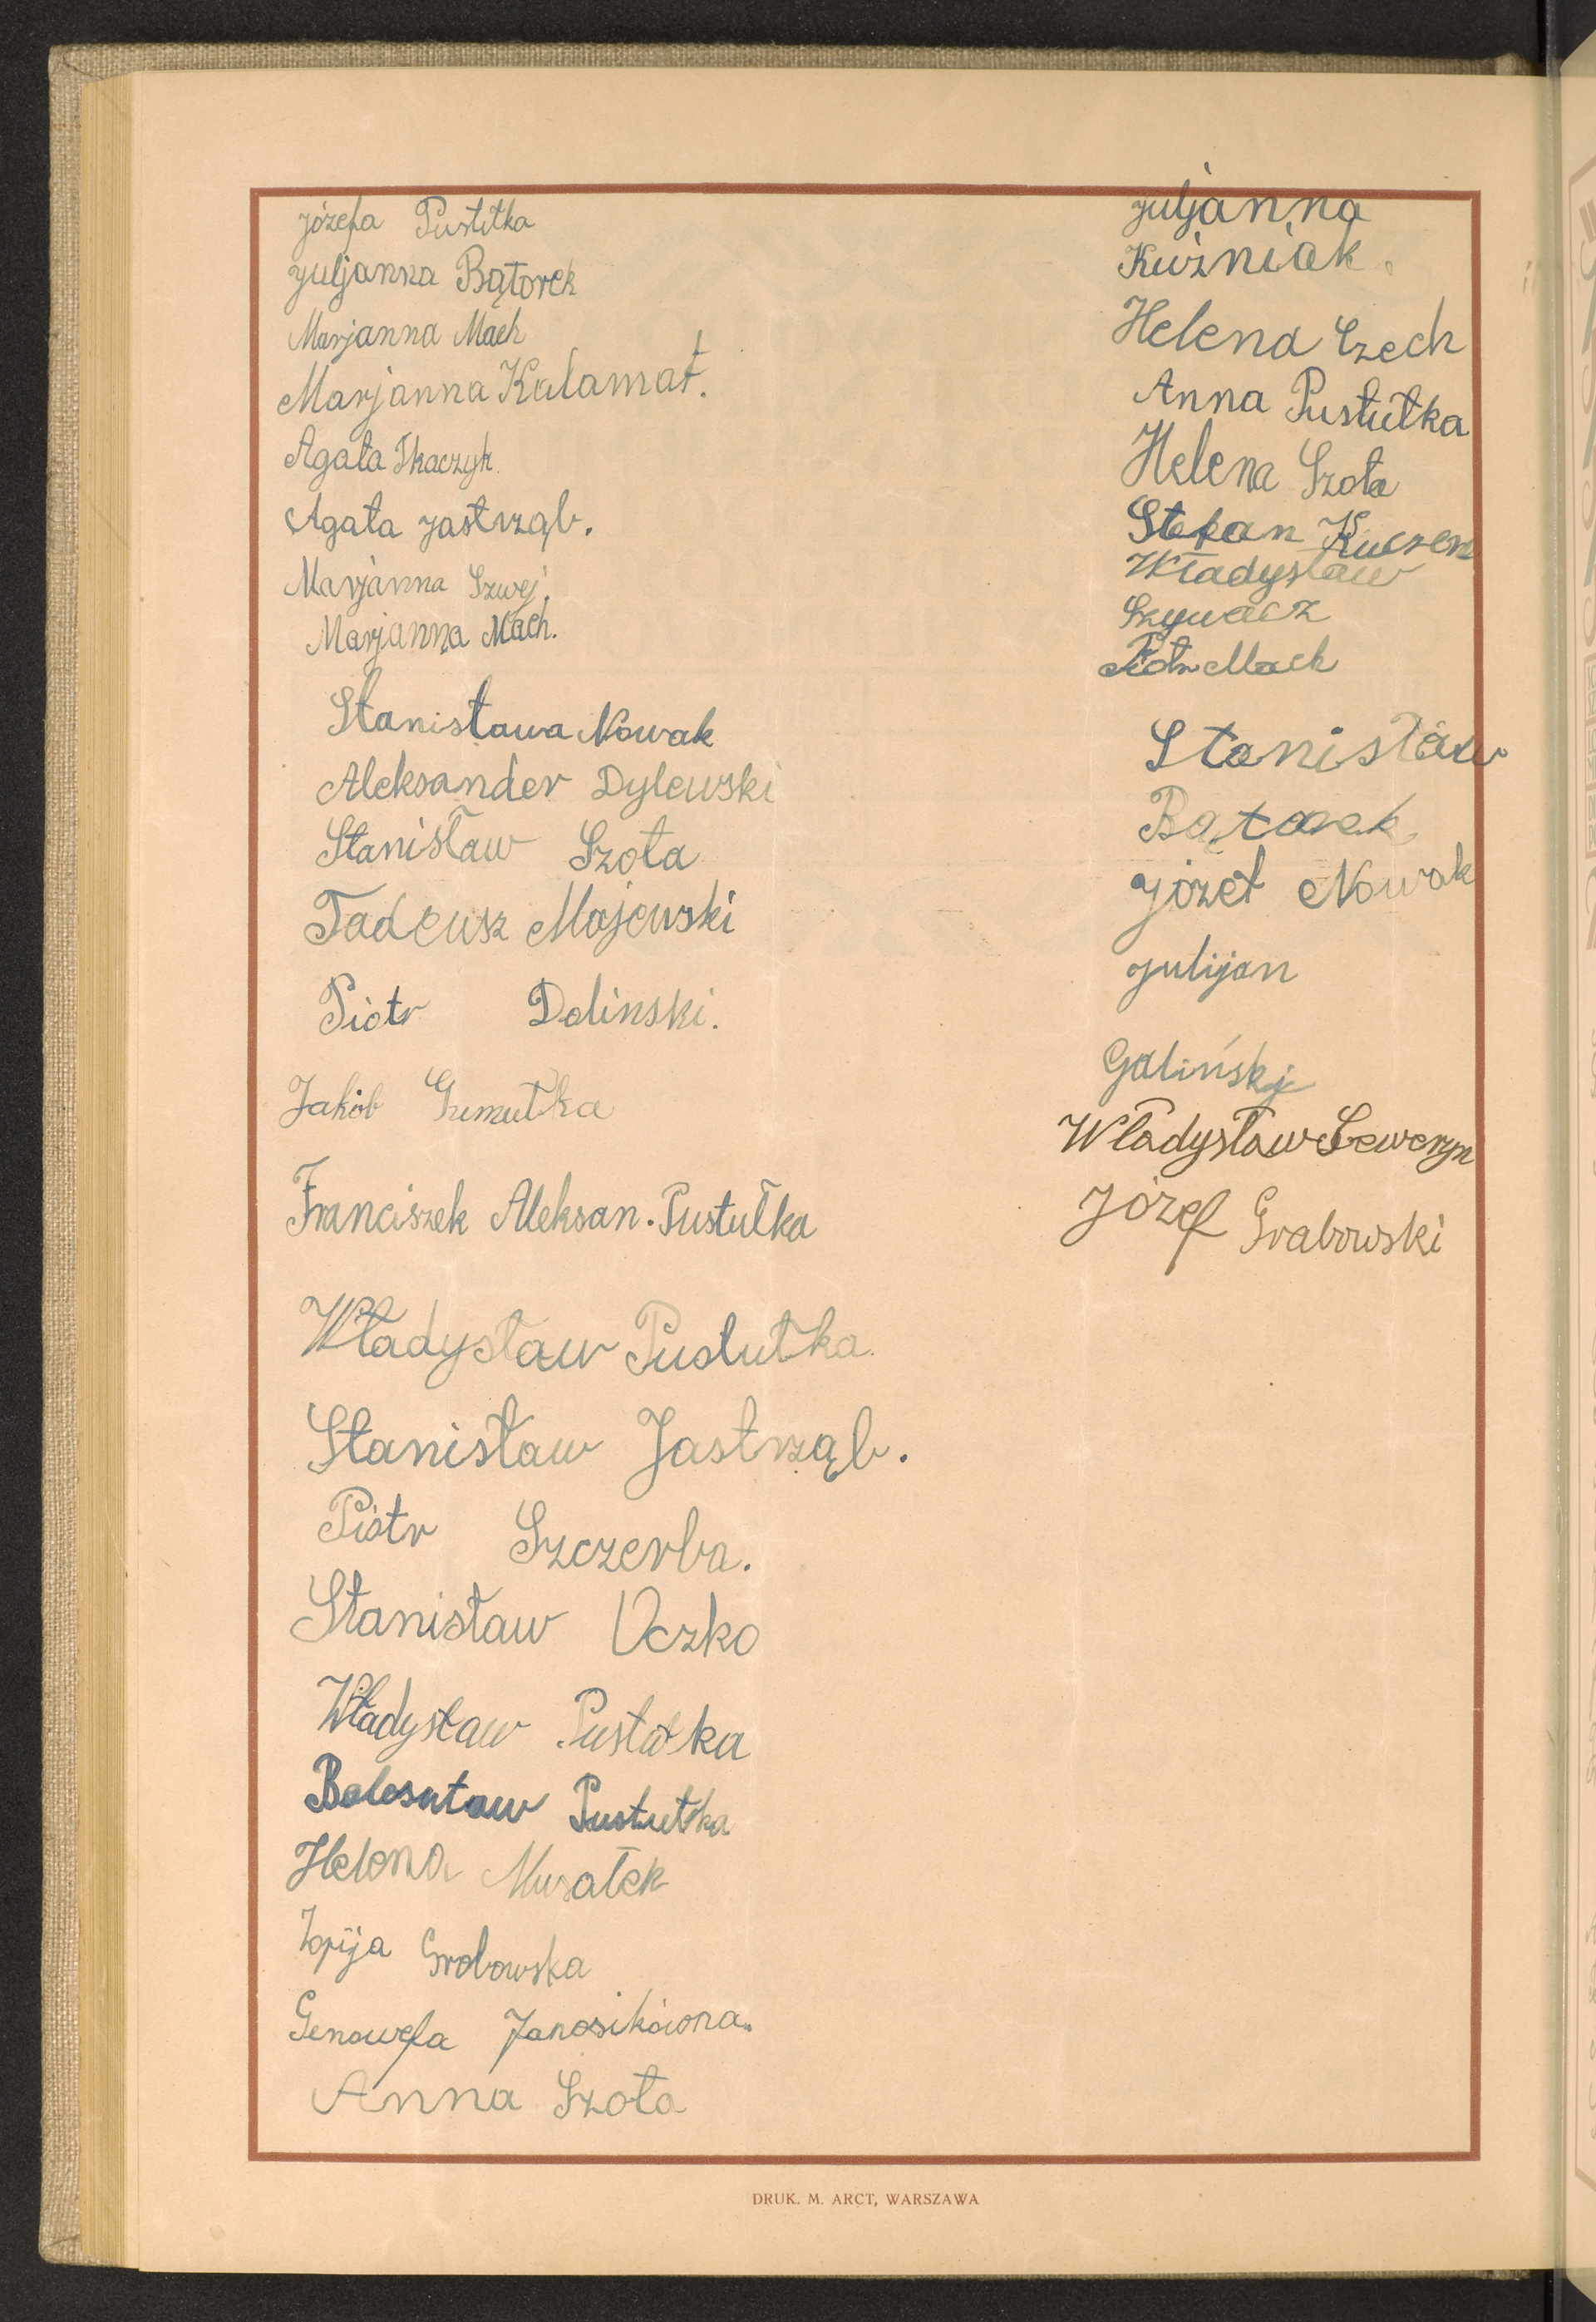 Józefa Pustułka
Juljanna Bątorek
Marjanna Mach
Marjanna Kałamat.
Agata Tkaczyk.
Agata Jastrząb.
Marjanna Szwej.
Marjanna Mach.
Stanisława Nowak
Aleksander Dylewski
Stanisław Szota
Tadeusz Majewski
Piotr Dolinski.
Jakób
Franciszek Aleksan. Pustułka
Władysław Pustułka.
Stanisław Jastrząb.
Piotr Szczerba.
Stanisław Oczko
Władysław Pustułka
Bolesłaław Pustułka
Helena Musałek
Zofija Grabowska
Genowefa Janosikówna.
Anna Szota
Juljanna
Kuźniak.
Helena Czech
Anna Pustułka
Helena Szota
Stefan Kuczera
Władysław
Szywacz
Piotr Mach
Stanisław
Bątorek
Józef Nowak
Julijan
Galiński
Władysław Seweryn
Józef Grabowski
DRUK. M. ARCT, WARSZAWA